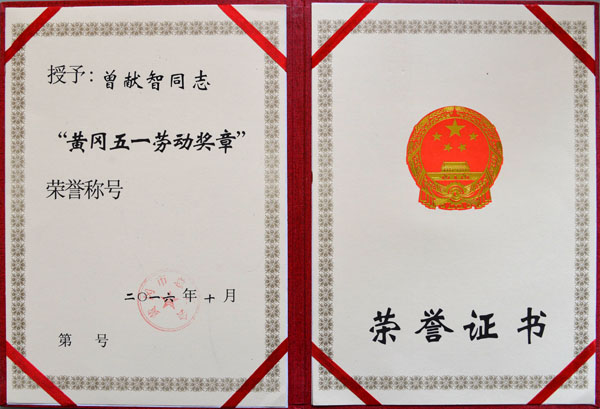 授予：曾献智同志
“黄冈五一劳动奖章”
荣誉称号
二〇一六年十月
第 号
荣誉证书